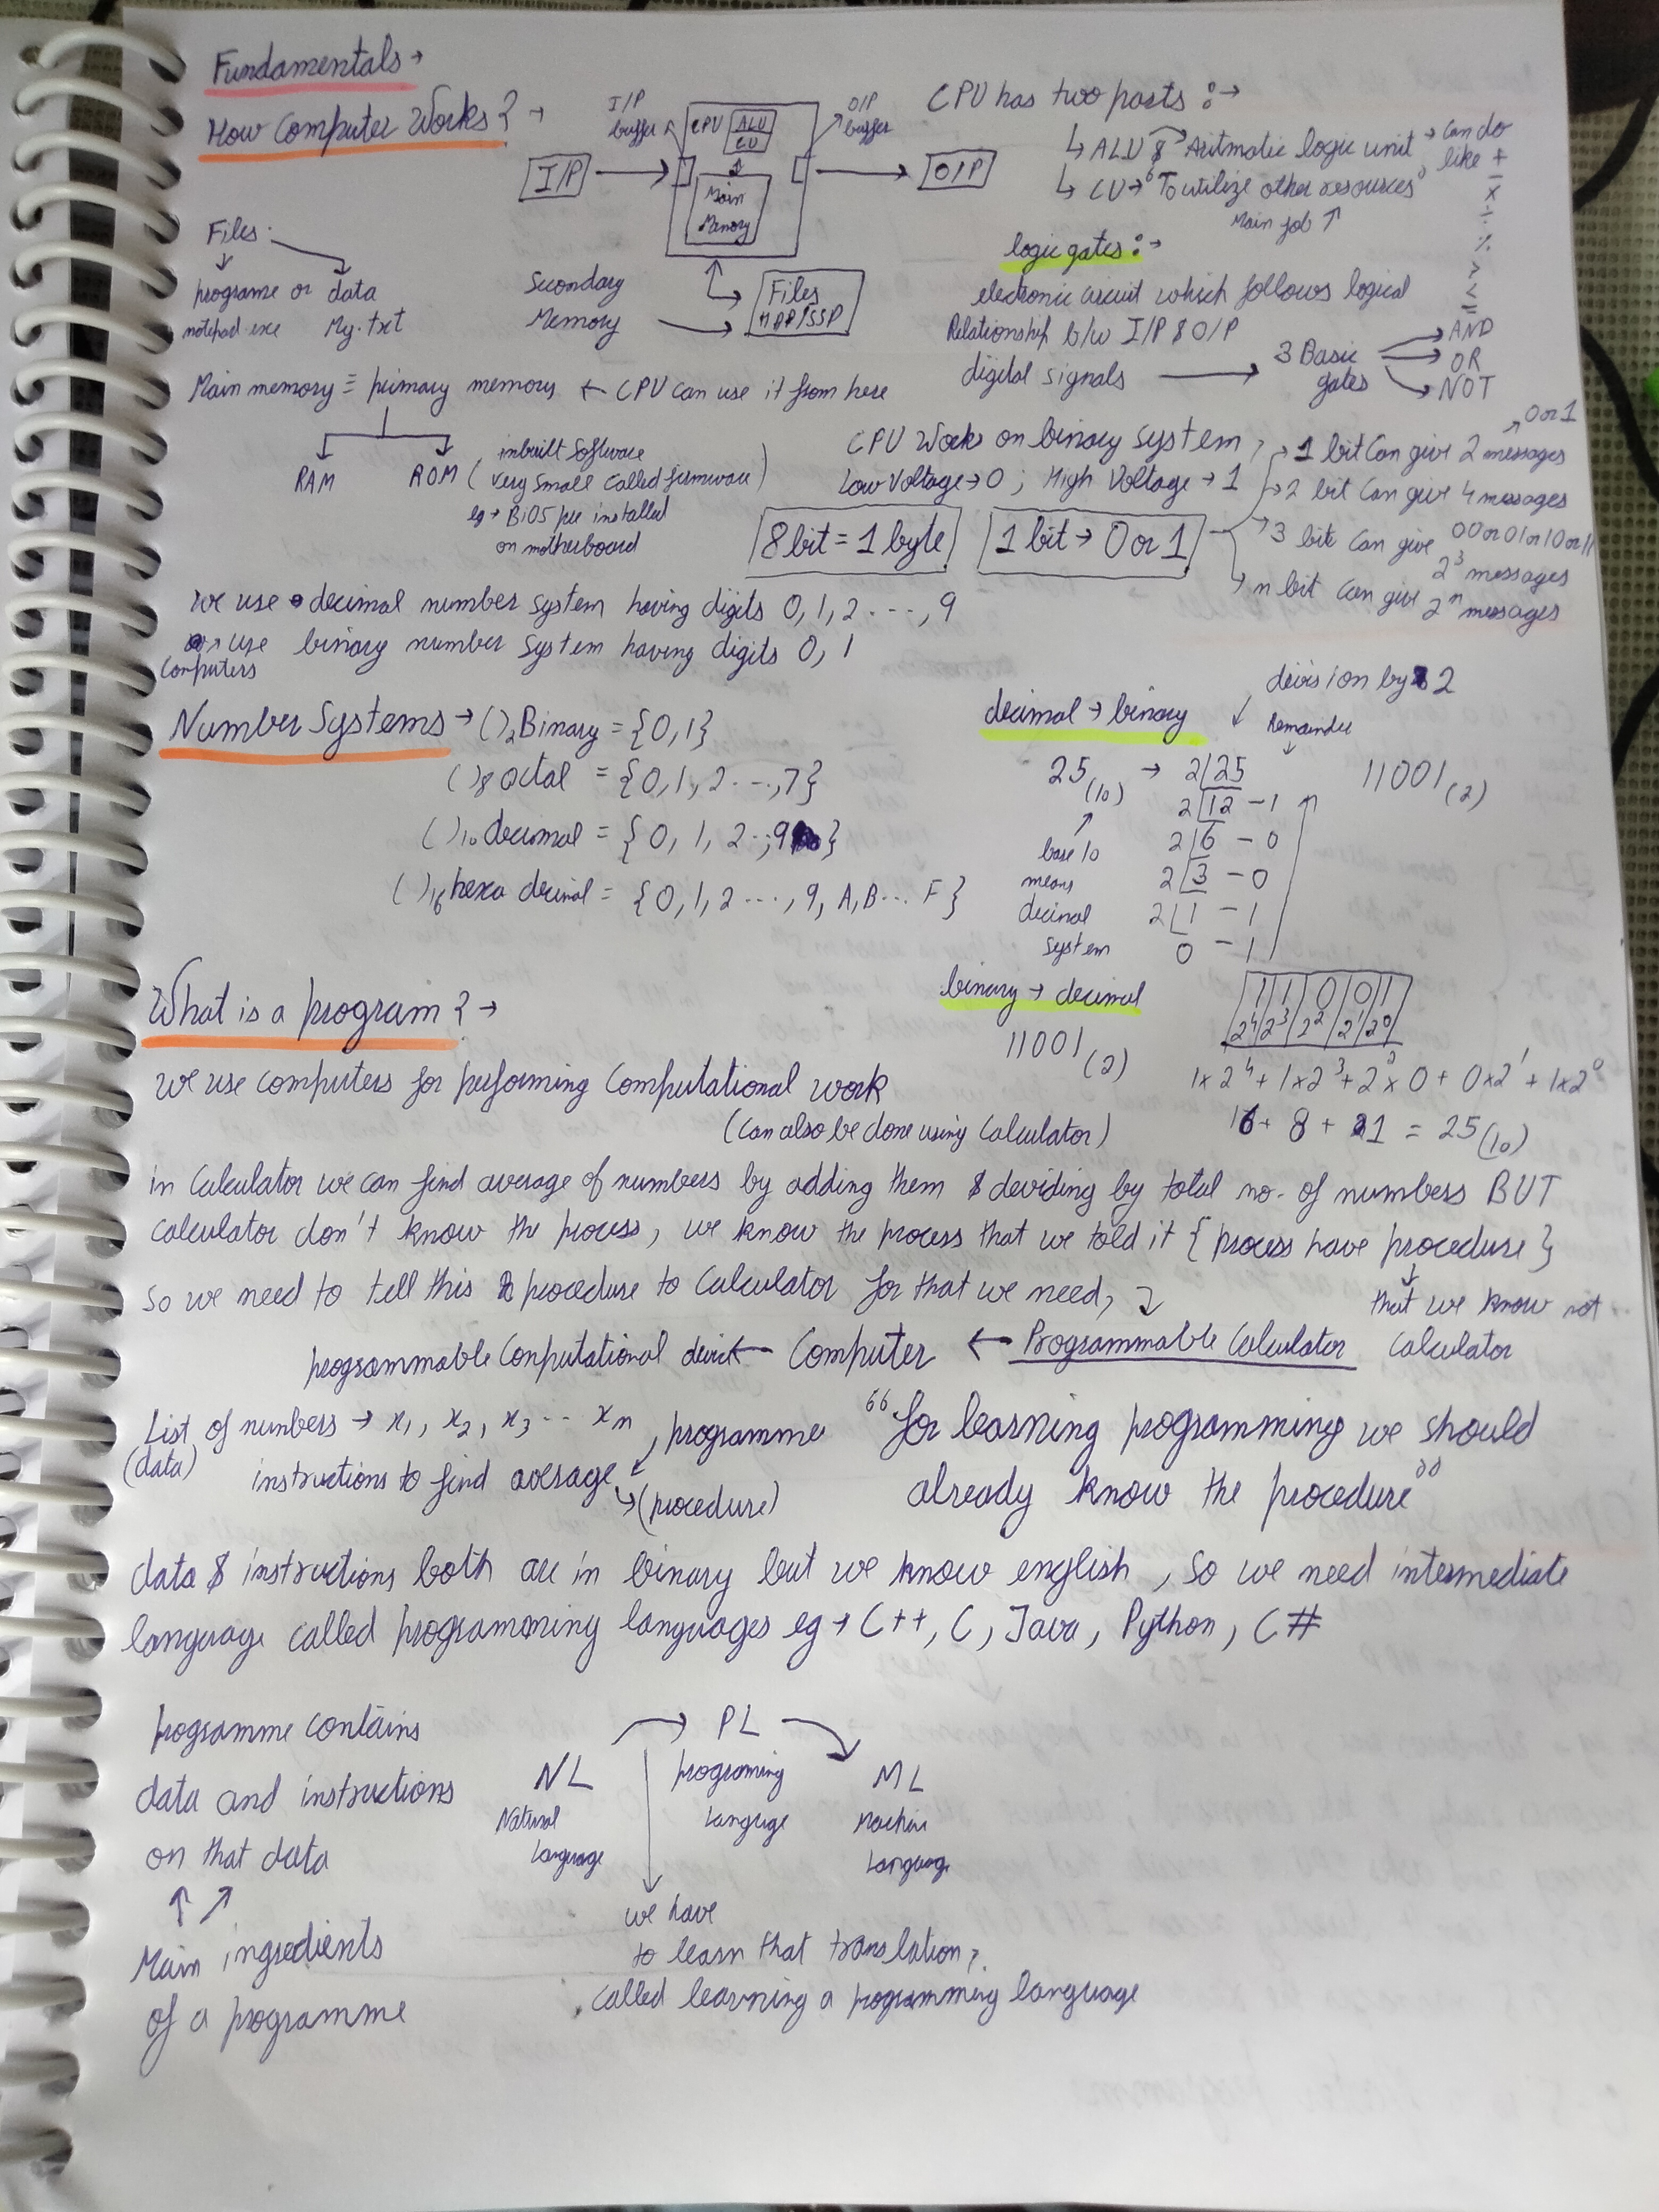 Fundamentals →
How Computer Works? →
I/P buffer
CPU
ALU
CU
O/P buffer
I/P
O/P
Main Memory
Secondary Memory
Files
Files
programe or data
notepad.exe My.txt
CPU has two parts :→
↳ ALU → Aritmatic logic unit → Can do like + - × ÷ % > < =
↳ CU → "To utilize other resources"
Main job ↑
logic gates :→
electronic circuit which follows logical
Relationship b/w I/P & O/P
digital signals → 3 Basic gates
AND
OR
NOT
Main memory = primary memory ← CPU can use it from here
RAM ROM ( inbuilt Software
very small called firmware )
eg → BiOS pre installed
on motherboard
CPU Works on binary system,
Low Voltage → 0 ; High Voltage → 1
8 bit = 1 byte
1 bit → 0 or 1
0 or 1
→ 1 bit Can give 2 messages
→ 2 bit Can give 4 messages
00 or 01 or 10 or 11
→ 3 bit Can give 2³ messages
→ n bit Can give 2ⁿ messages
we use decimal number system having digits 0, 1, 2 ---, 9
Computers use binary number system having digits 0, 1
Number Systems → ( )₂ Binary = {0, 1}
( )₈ octal = {0, 1, 2 ---, 7}
( )₁₀ decimal = {0, 1, 2 .., 9}
( )₁₆ hexa decimal = {0, 1, 2 ---, 9, A, B... F}
decimal → binary
division by 2
Remainder
25(10) → 2|25 11001(2)
2|12 - 1
2|6 - 0
2|3 - 0
2|1 - 1
0 - 1
base 10
means
decimal
system
binary → decimal
11001(2)
1 1 0 0 1
2⁴ 2³ 2² 2¹ 2⁰
1×2⁴ + 1×2³ + 2²×0 + 0×2¹ + 1×2⁰
16 + 8 + 1 = 25(10)
What is a program? →
we use computers for performing Computational work
(Can also be done using Calculator)
in Calculator we can find average of numbers by adding them & deviding by total no. of numbers BUT
calculator don't know the process, we know the process that we told it { process have procedure }
So we need to tell this procedure to Calculator for that we need,
that we know not calculator
programmable Computational device ← Computer ← Programmable Calculator
List of numbers → x₁, x₂, x₃ --- xₙ
(data)
instructions to find average
programme
(procedure)
"for learning programming we should
already know the procedure"
data & instructions both are in binary but we know english, so we need intermediate
language called programming languages eg → C++, C, Java, Python, C#
programme contains
data and instructions
on that data
Main ingredients
of a programme
NL
Natural
Language
PL
programing
Language
ML
Machine
Language
we have
to learn that translation,
called learning a programming language